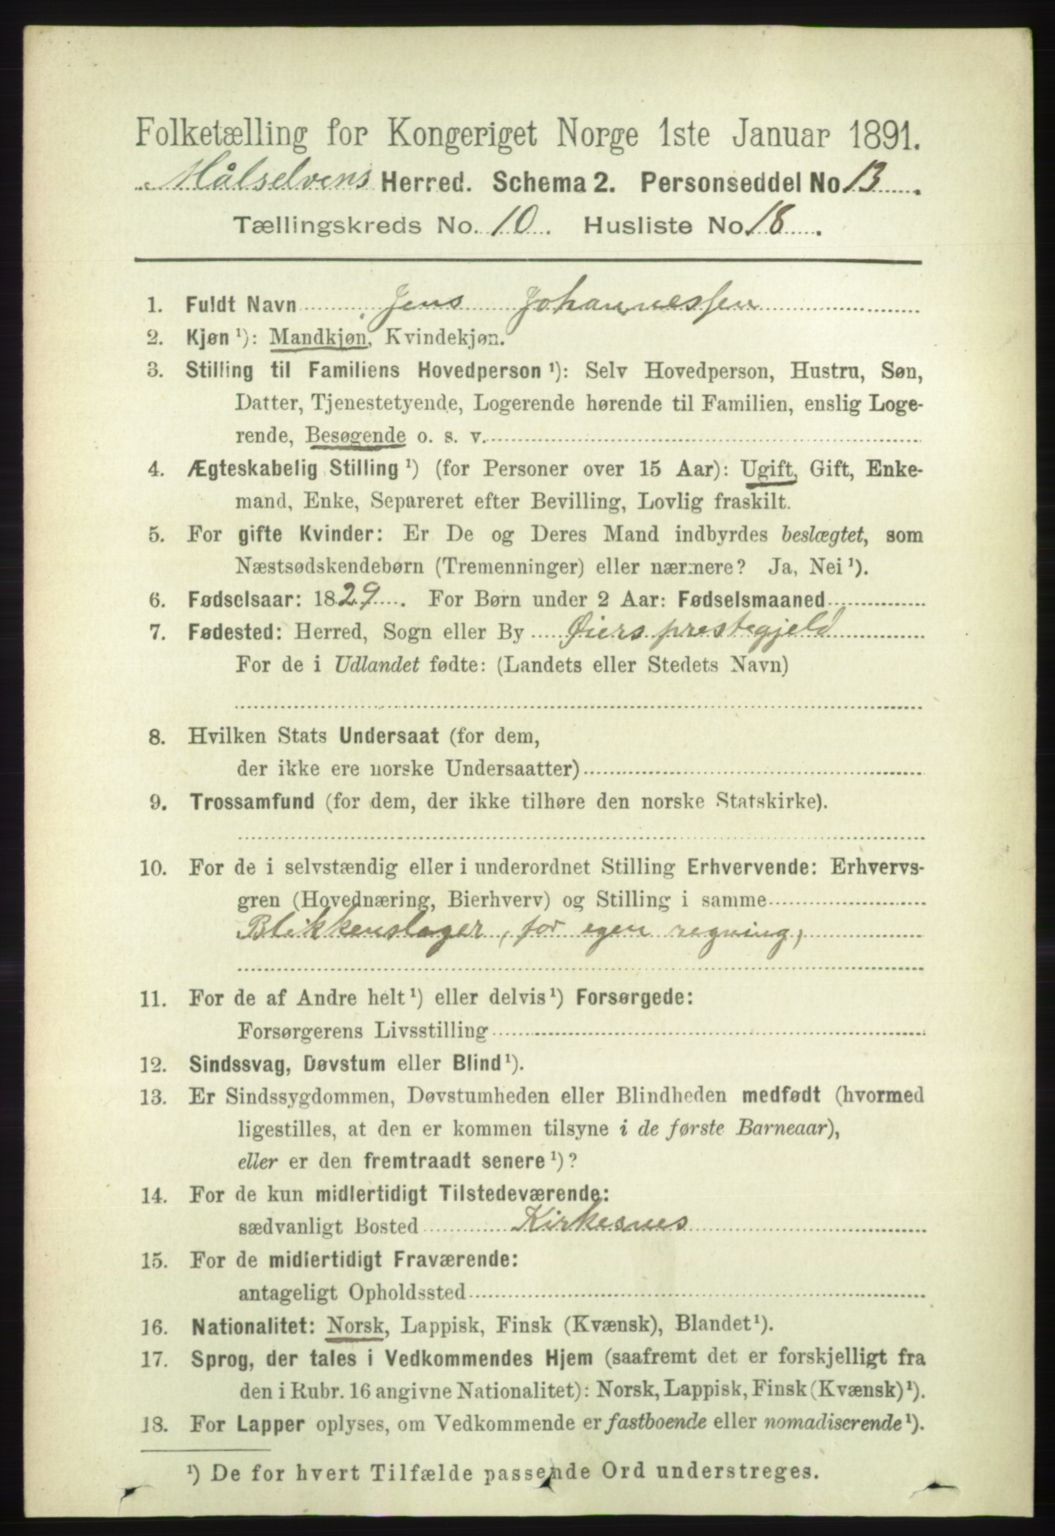 Folketælling for Kongeriget Norge 1ste Januar 1891.
Målselvens Herred. Schema 2. Personseddel No 13.
Tællingskreds No. 10. Husliste No 18.
1. Fuldt Navn Jens Johannessen
2. Kjøn ¹): Mandkjøn, Kvindekjøn.
3. Stilling til Familiens Hovedperson ¹): Selv Hovedperson, Hustru, Søn,
Datter, Tjenestetyende, Logerende hørende til Familien, enslig Loge-
rende, Besøgende o. s. v.
4. Ægteskabelig Stilling ¹) (for Personer over 15 Aar): Ugift, Gift, Enke-
mand, Enke, Separeret efter Bevilling, Lovlig fraskilt.
5. For gifte Kvinder: Er De og Deres Mand indbyrdes beslægtet, som
Næstsødskendebørn (Tremenninger) eller nærmere? Ja, Nei ¹).
6. Fødselsaar: 1829. For Børn under 2 Aar: Fødselsmaaned
7. Fødested: Herred, Sogn eller By Øiers prestegjeld
For de i Udlandet fødte: (Landets eller Stedets Navn)
8. Hvilken Stats Undersaat (for dem,
der ikke ere norske Undersaatter)
9. Trossamfund (for dem, der ikke tilhøre den norske Statskirke).
10. For de i selvstændig eller i underordnet Stilling Erhvervende: Erhvervs-
gren (Hovednæring, Bierhverv) og Stilling i samme
Blikkenslager, for egen regning,
11. For de af Andre helt ¹) eller delvis ¹) Forsørgede:
Forsørgerens Livsstilling
12. Sindssvag, Døvstum eller Blind ¹).
13. Er Sindssygdommen, Døvstumheden eller Blindheden medfødt (hvormed
ligestilles, at den er kommen tilsyne i de første Barneaar),
eller er den fremtraadt senere ¹)?
14. For de kun midlertidigt Tilstedeværende:
sædvanligt Bosted Kirkesnes
15. For de midlertidigt Fraværende:
antageligt Opholdssted
16. Nationalitet: Norsk, Lappisk, Finsk (Kvænsk), Blandet ¹).
17. Sprog, der tales i Vedkommendes Hjem (saafremt det er forskjelligt fra
den i Rubr. 16 angivne Nationalitet): Norsk, Lappisk, Finsk (Kvænsk) ¹).
18. For Lapper oplyses, om Vedkommende er fastboende eller nomadiserende ¹).
¹) De for hvert Tilfælde passende Ord understreges.